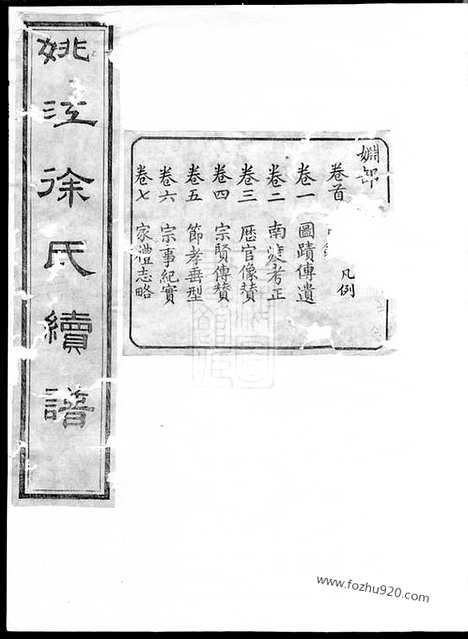 姚江徐氏續譜
卷首
凡例
卷一 圖蹟傳遺
卷二 南雝考正
卷三 歷官像贊
卷四 宗賢傳贊
卷五 節孝垂型
卷六 宗事紀實
卷七 家禮志略
www.fozhu920.com